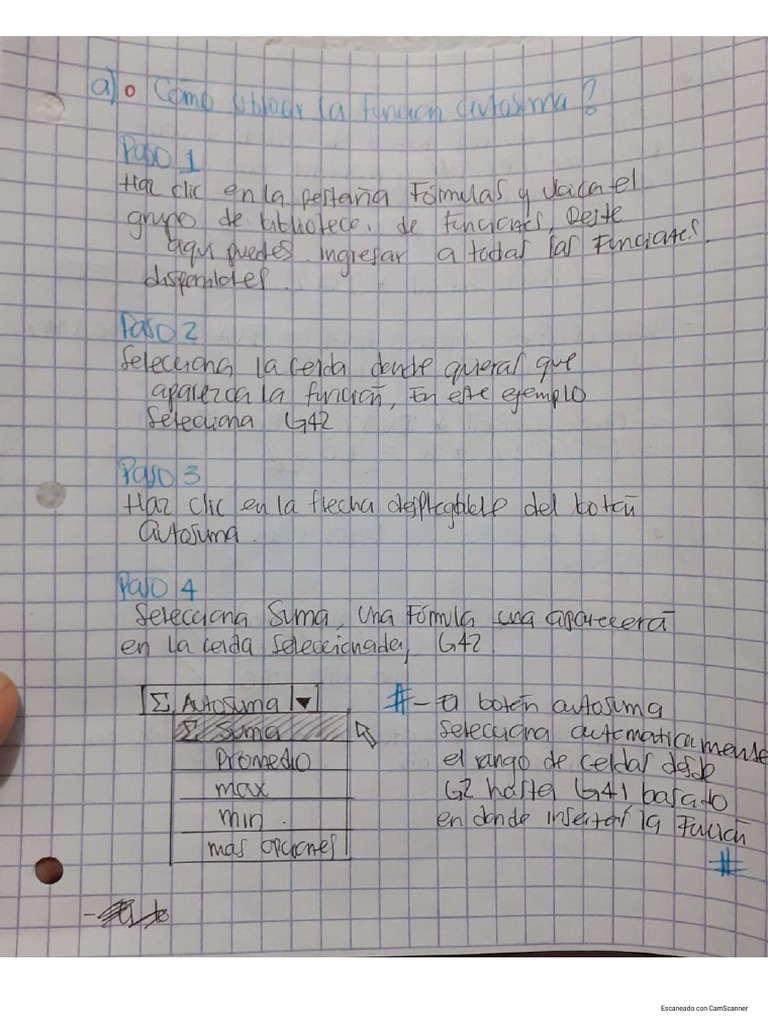 a) o Cómo utilizar la función autosuma?
Paso 1
Haz clic en la pestaña Fórmulas y ubica el
grupo de biblioteca, de funciones, Deste
aqui puedes ingresar a todas las Funciones.
disponibles.
Paso 2
Selecciona la celda donde quieras que
aparezca la función, En este ejemplo
Selecciona G42
Paso 3
Haz clic en la flecha desplegable del botón
Autosuma.
Paso 4
Selecciona Suma, una Fórmula una aparecerá
en la celda Seleccionada, G42.
Σ Autosuma ▼
Σ Suma
Promedio
max
min.
mas opciones
# - El botón autosuma
Selecciona automaticamente
el rango de celdas desde
G2 hasta G41 basado
en donde insertas la Función
#
Escaneado con CamScanner